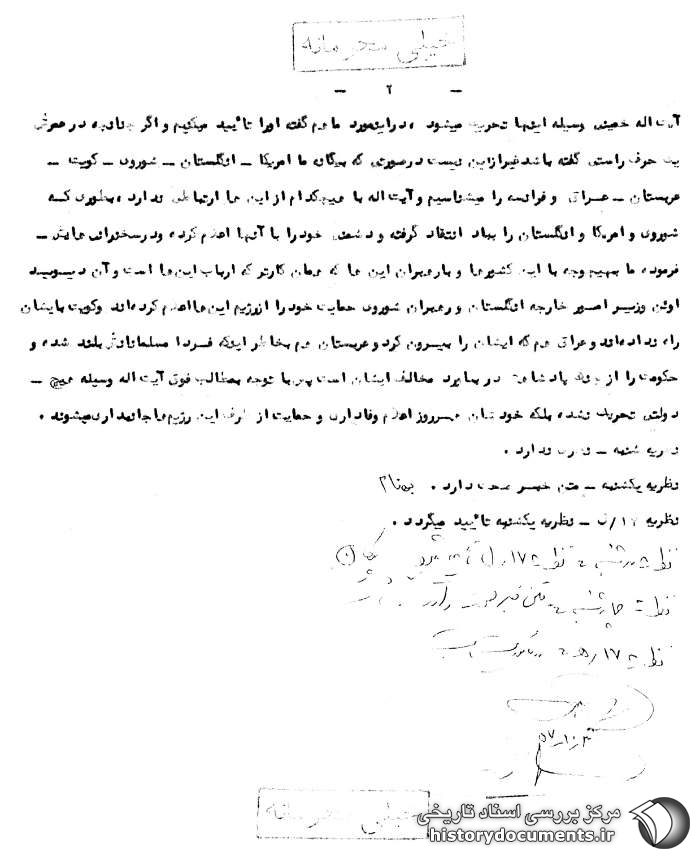 خیلی محرمانه
— ۲ —
آیت اله خمینی وسیله اینها تحریک میشود ، دراینمورد ما هم گفته اورا تائید میکنیم و اگر چنانچه در عمرش
یک حرف راستی گفته باشد غیرازاین نیست درصورتی که بیگانه ما امریکا — انگلستان — شوروی — کویت —
عربستان — عراق و فرانسه را میشناسیم و آیت اله با هیچکدام از این ها ارتباطی ندارد ، بطوری که
شوروی و امریکا و انگلستان را بباد انتقاد گرفته و دشمنی خود را با آنها اعلام کرده ودرسخنرانی هایش —
فرموده ما بهیچ وجه با این کشورها و با رهبران این ها که همان کارتر که ارباب این ها است و آن دیوید
اوئن وزیر امور خارجه انگلستان و رهبران شوروی حمایت خود را از رژیم این ها اعلام کرده اند وکویت بایشان
راه نداده اند و عراق هم که ایشان را بیرون کرد و عربستان هم بخاطر اینکه فردا مسلمانانش بلند شده و
حکومت را از چنگ پادشاهی در بیاورد مخالف ایشان است پس با توجه بمطالب فوق آیت اله وسیله هیچ —
دولتی تحریک نشده بلکه خودتان هرروز اعلام وفاداری و حمایت از طرف این رژیم ها جانبداری میشوند .
نظریه شنبه — نظری ندارد .
نظریه یکشنبه — متن خبر صحت دارد . بهنام
نظریه ۱۷/ — نظریه یکشنبه تائید میگردد .
نظریه سه شنبه نظریه ۱۷/ تأیید میشود
نظریه چهارشنبه متن خبر صحت دارد
نظریه ۱۷/ه
۵۷
خیلی محرمانه
مرکز بررسی اسناد تاریخی
historydocuments.ir